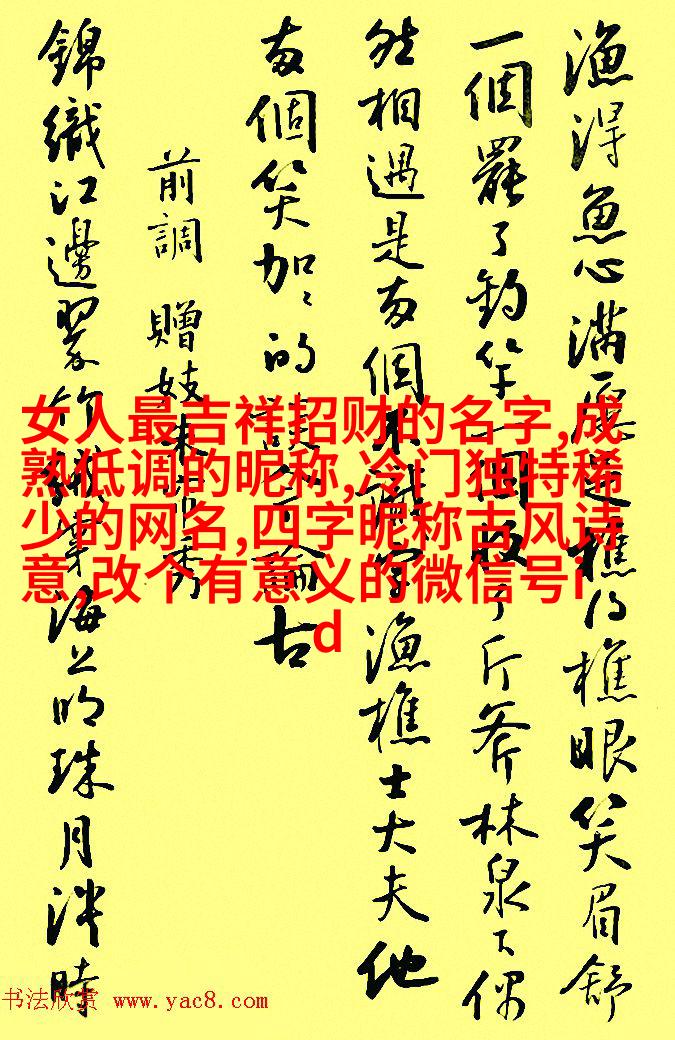 漁得魚心滿願足樵得樵眼笑眉舒
一個罷了釣竿一個收了斤斧林泉下偶
然相遇是兩個不識字漁樵士大夫他
兩個笑加〻的談今論古
前調 贈妓朱帘秀
錦織江邊翠竹絨穿海上明珠月淡時
女人最吉祥招财的名字,成
熟低调的昵称,冷门独特稀
少的网名,四字昵称古风诗
意,改个有意义的微信号i
d
书法欣赏 www.yac8.com